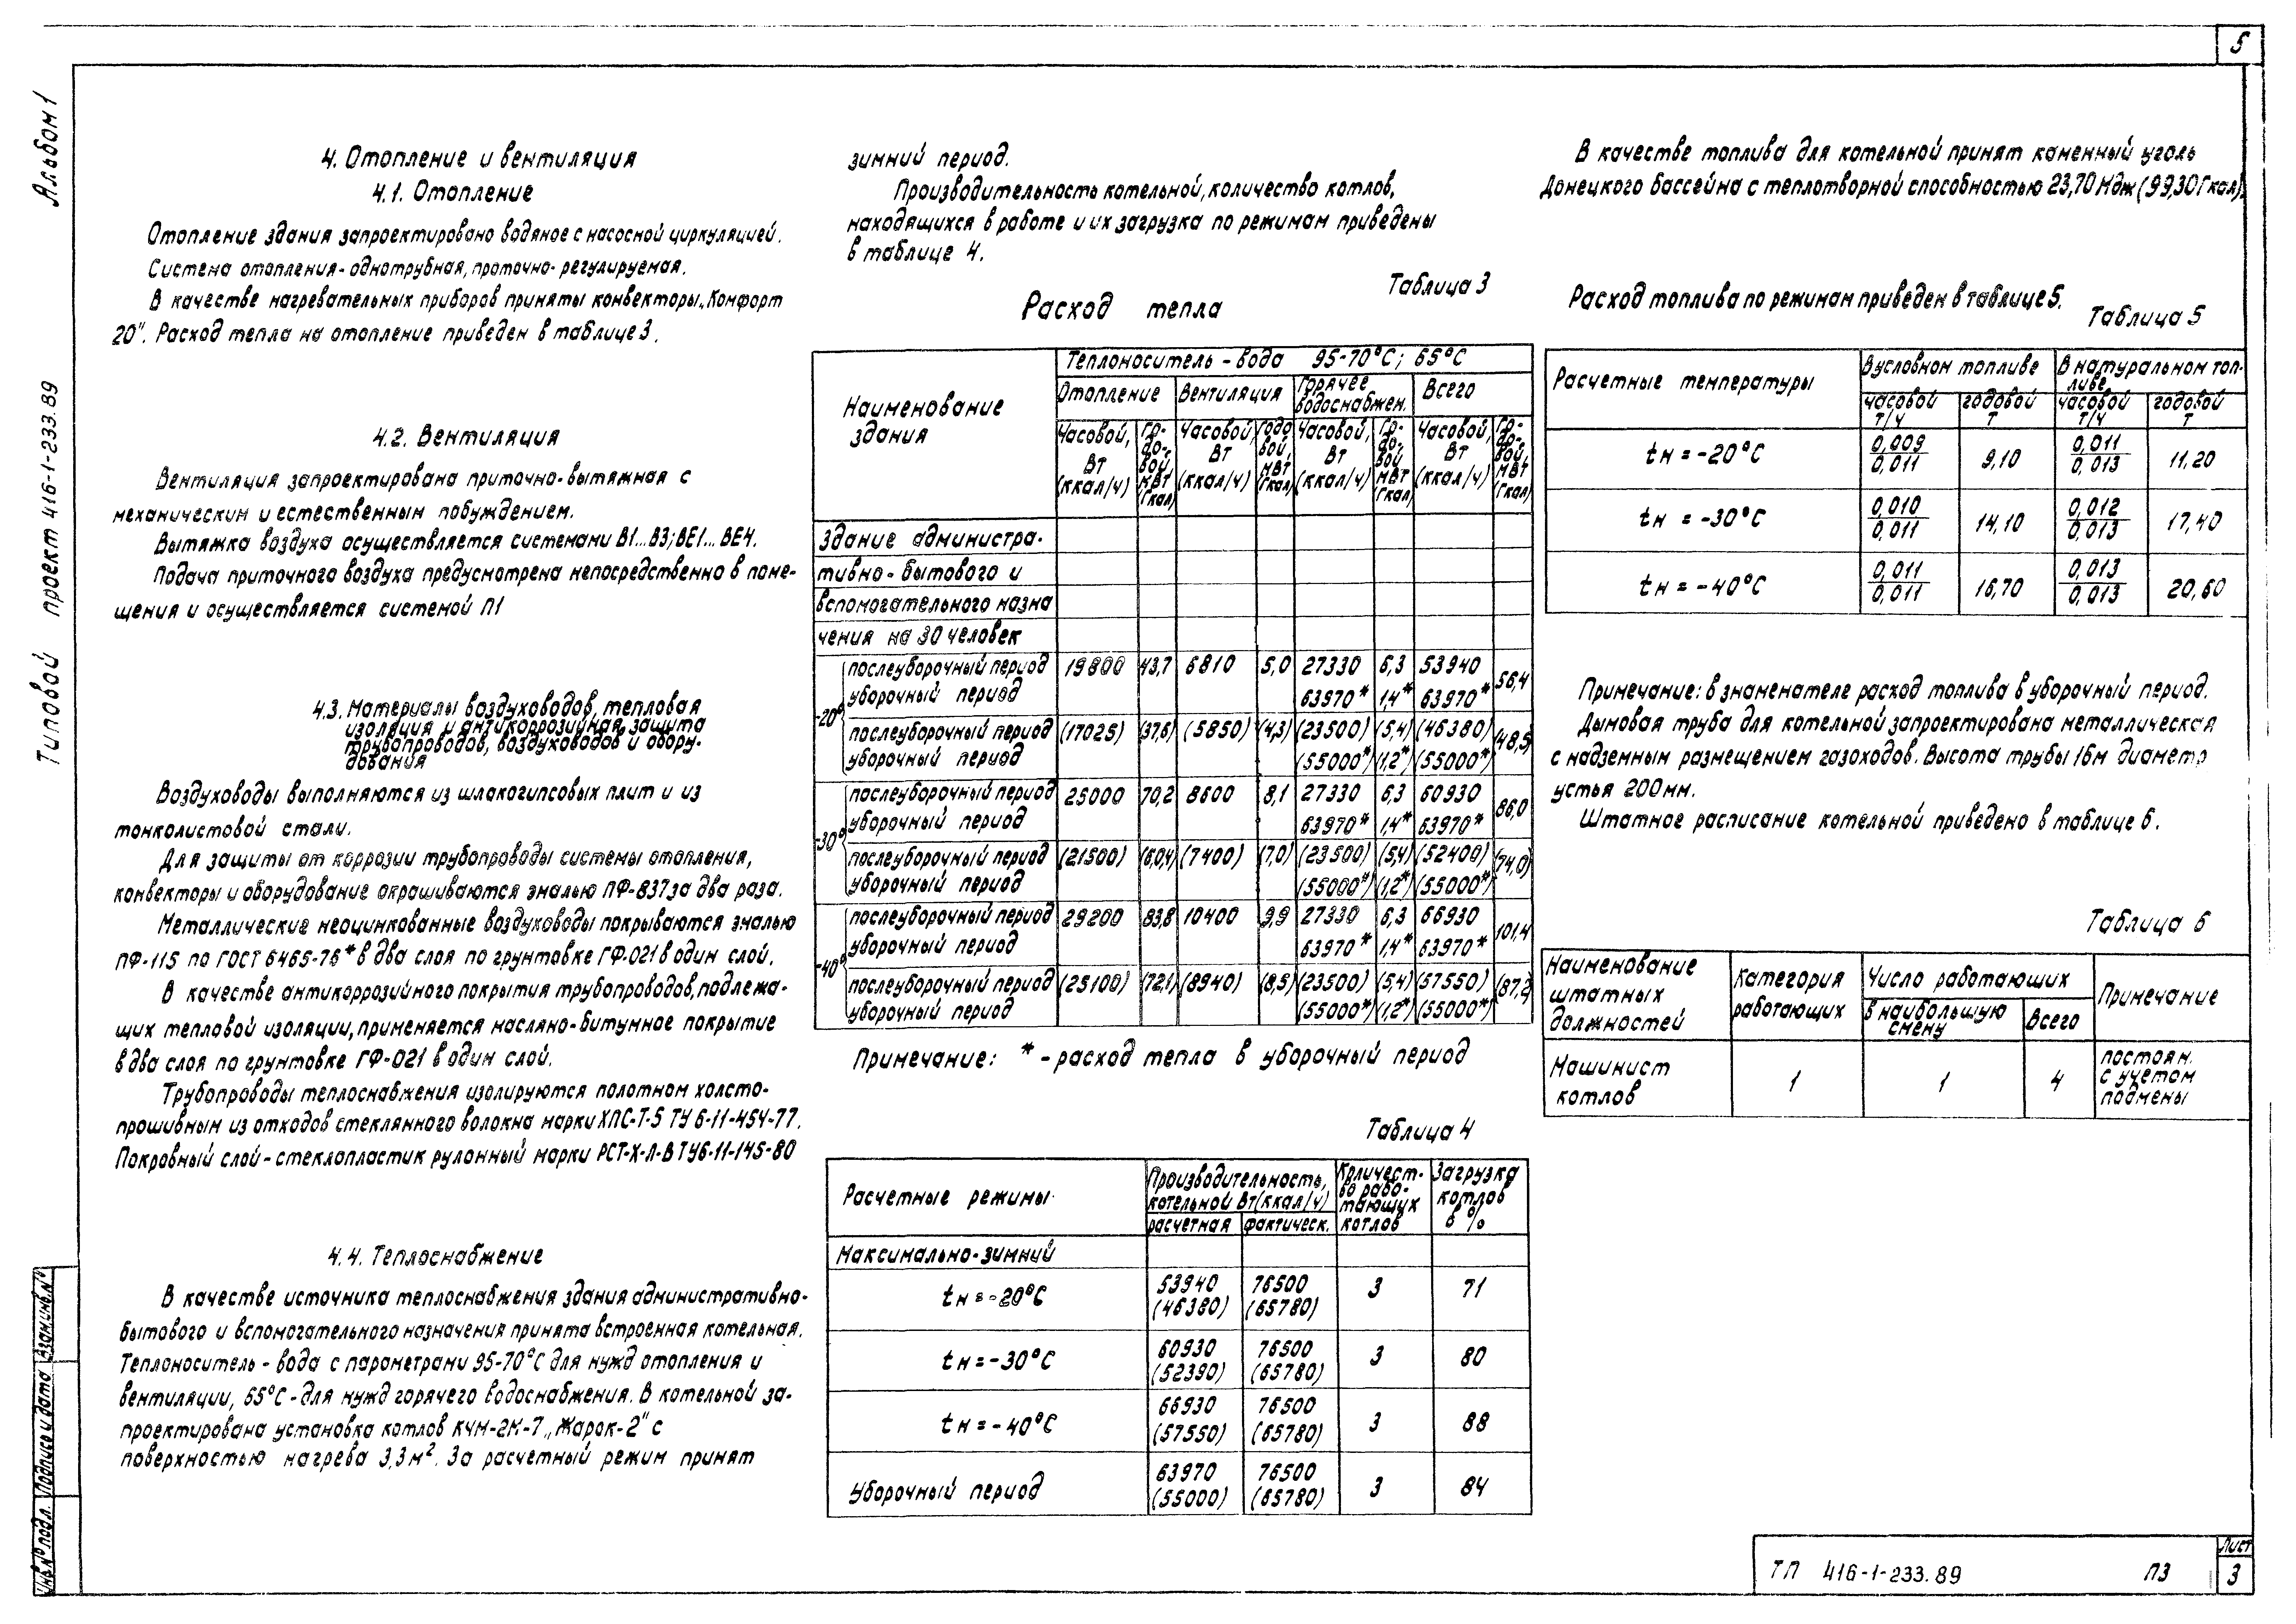 5
Альбом 1
Типовой проект 416-1-233.89
4. Отопление и вентиляция
4.1. Отопление
Отопление здания запроектировано водяное с насосной циркуляцией.
Система отопления - однотрубная, проточно-регулируемая.
В качестве нагревательных приборов приняты конвекторы „Комфорт
20". Расход тепла на отопление приведен в таблице 3.
4.2. Вентиляция
Вентиляция запроектирована приточно-вытяжная с
механическим и естественным побуждением.
Вытяжка воздуха осуществляется системами В1...В3; ВЕ1...ВЕ4.
Подача приточного воздуха предусмотрена непосредственно в поме-
щения и осуществляется системой П1
4.3. Материалы воздуховодов, тепловая
изоляция и антикоррозийная защита
трубопроводов, воздуховодов и обору-
дования
Воздуховоды выполняются из шлакогипсовых плит и из
тонколистовой стали.
Для защиты от коррозии трубопроводы системы отопления,
конвекторы и оборудование окрашиваются эмалью ПФ-837 за два раза.
Металлические неоцинкованные воздуховоды покрываются эмалью
ПФ-115 по ГОСТ 6465-76* в два слоя по грунтовке ГФ-021 в один слой.
В качестве антикоррозийного покрытия трубопроводов, подлежа-
щих тепловой изоляции, применяется масляно-битумное покрытие
в два слоя по грунтовке ГФ-021 в один слой.
Трубопроводы теплоснабжения изолируются полотном холсто-
прошивным из отходов стеклянного волокна марки ХПС-Т-5 ТУ 6-11-454-77.
Покровный слой - стеклопластик рулонный марки РСТ-Х-Л-В ТУ6-11-145-80
4.4. Теплоснабжение
В качестве источника теплоснабжения здания административно-
бытового и вспомогательного назначения принята встроенная котельная.
Теплоноситель - вода с параметрами 95-70°С для нужд отопления и
вентиляции, 65°С - для нужд горячего водоснабжения. В котельной за-
проектирована установка котлов КЧМ-2М-7 „Жарок-2" с
поверхностью нагрева 3,3м². За расчетный режим принят
зимний период.
Производительность котельной, количество котлов,
находящихся в работе и их загрузка по режимам приведены
в таблице 4.
Таблица 3
Расход тепла
Наименование здания | Теплоноситель - вода 95-70°С; 65°С
Отопление | Вентиляция | Горячее водоснабжен. | Всего
Часовой, Вт (ккал/ч) | Го-до-вой, МВт (Гкал) | Часовой, Вт (ккал/ч) | Годо вой, МВт (Гкал) | Часовой, Вт (ккал/ч) | Го-до-вой МВт (Гкал) | Часовой, Вт (ккал/ч) | Го-до-вой, МВт (Гкал)
Здание администра-
тивно-бытового и
вспомогательного назна
чения на 30 человек
-20°
послеуборочный период | 19800 | 43,7 | 6810 | 5,0 | 27330 | 6,3 | 53940 | 56,4
уборочный период | 63970* | 1,4* | 63970*
послеуборочный период | (17025) | (37,6) | (5850) | (4,3) | (23500) | (5,4) | (46380) | (48,5)
уборочный период | (55000*) | (1,2*) | (55000*)
-30°
послеуборочный период | 25000 | 70,2 | 8600 | 8,1 | 27330 | 6,3 | 60930 | 86,0
уборочный период | 63970* | 1,4* | 63970*
послеуборочный период | (21500) | (60,4) | (7400) | (7,0) | (23500) | (5,4) | (52400) | (74,0)
уборочный период | (55000*) | (1,2*) | (55000*)
-40°
послеуборочный период | 29200 | 83,8 | 10400 | 9,9 | 27330 | 6,3 | 66930 | 101,4
уборочный период | 63970* | 1,4* | 63970*
послеуборочный период | (25100) | (72,1) | (8940) | (8,5) | (23500) | (5,4) | (57550) | (87,2)
уборочный период | (55000*) | (1,2*) | (55000*)
Примечание: * - расход тепла в уборочный период
Таблица 4
Расчетные режимы | Производительность, котельной Вт (ккал/ч) | Количест-во рабо-тающих котлов | Загрузка котлов в %
расчетная | фактическ.
Максимально-зимний
tн = -20°С | 53940 (46380) | 76500 (65780) | 3 | 71
tн = -30°С | 60930 (52390) | 76500 (65780) | 3 | 80
tн = -40°С | 66930 (57550) | 76500 (65780) | 3 | 88
Уборочный период | 63970 (55000) | 76500 (65780) | 3 | 84
В качестве топлива для котельной принят каменный уголь
Донецкого бассейна с теплотворной способностью 23,70 Мдж (99,30 Гкал).
Расход топлива по режимам приведен в таблице 5.
Таблица 5
Расчетные температуры | В условном топливе | В натуральном топ-ливе
часовой т/ч | годовой т | часовой т/ч | годовой т
tн = -20°С | 0,009/0,011 | 9,10 | 0,011/0,013 | 11,20
tн = -30°С | 0,010/0,011 | 14,10 | 0,012/0,013 | 17,40
tн = -40°С | 0,011/0,011 | 16,70 | 0,013/0,013 | 20,60
Примечание: в знаменателе расход топлива в уборочный период.
Дымовая труба для котельной запроектирована металлическая
с надземным размещением газоходов. Высота трубы 16м диаметр
устья 200мм.
Штатное расписание котельной приведено в таблице 6.
Таблица 6
Наименование штатных должностей | Категория работающих | Число работающих | Примечание
в наибольшую смену | Всего
Машинист котлов | 1 | 1 | 4 | постоян. с учетом подмены
Инв.№ подл. Подпись и дата Взам.инв.№
ТП 416-1-233.89 ПЗ
Лист
3